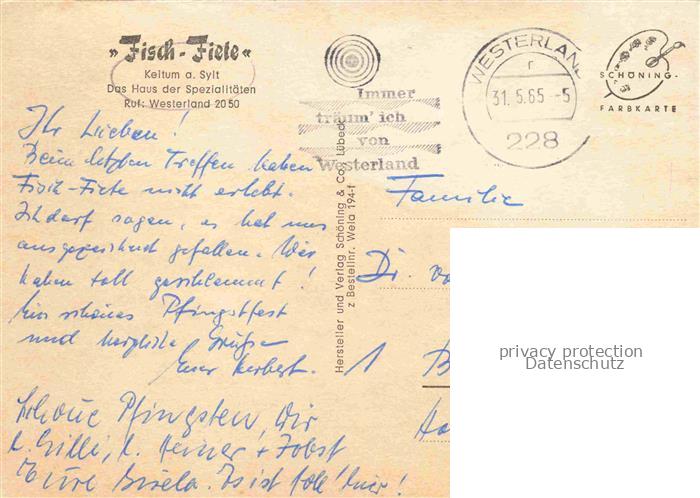 » Fisch - Fiete «
Keitum a. Sylt
Das Haus der Spezialitäten
Ruf: Westerland 20 50
Immer
träum' ich
von
Westerland
WESTERLAND
r
31. 5. 65 - 5
228
SCHÖNING-
FARBKARTE
Ihr Lieben!
Beim letzten Treffen haben
Fisch-Fiete nicht erlebt.
Ich darf sagen, es hat uns
ausgezeichnet gefallen. Wir
haben toll geschlemmt!
Ein schönes Pfingstfest
und herzliche Grüße
Euer Herbert.
Schöne Pfingsten, Wir
Eure Gisela. Es ist toll hier!
Hersteller und Verlag Schöning & Co., Lübeck
z Bestellnr. Wela 194-f
Familie
Dr. vo
1 B
privacy protection
Datenschutz